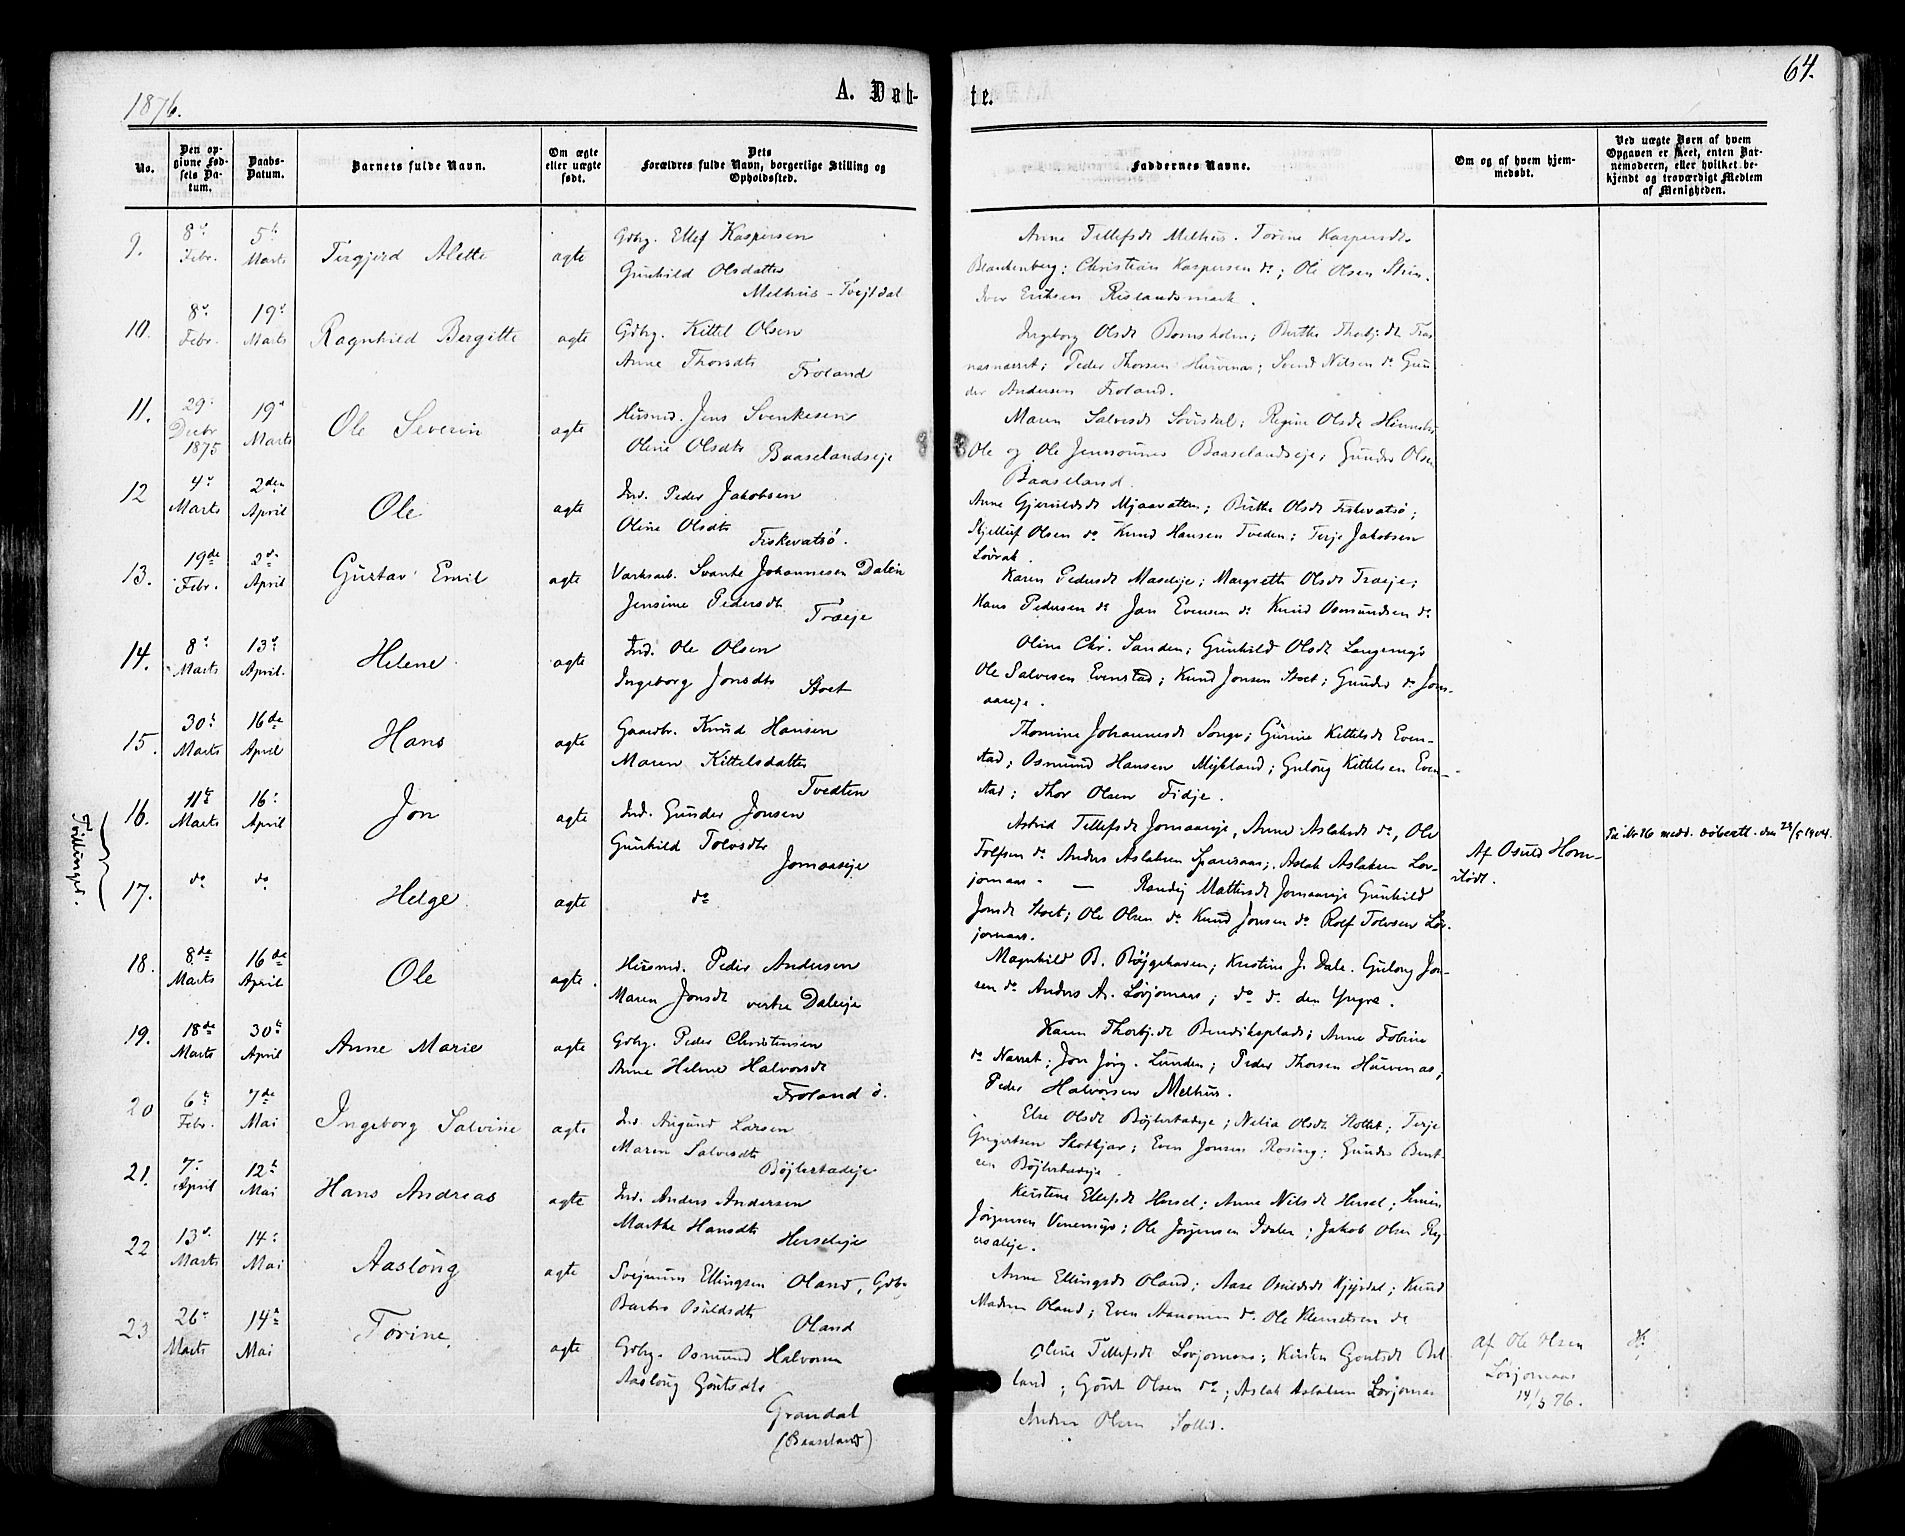 1876.
A. Døb-
te.
64.
No.
Den op-
givne Fød-
sels Da-
tum.
Daabs-
Datum.
Barnets fulde Navn.
Om ægte
eller uægte
født.
Dets
Forældres fulde Navn, borgerlige Stilling og
Opholdssted.
Faddernes Navne.
Om og af hvem hjem-
medøbt.
Ved uægte Børn af hvem
Opgaven er skeet, enten Bar-
nemoderen, eller hvilket be-
kjendt og troværdigt Medlem
af Menigheden.
9.
8de
Febr.
5te
Marts
Tergjerd Alette
ægte
Gdbg. Ellef Kaspersen
Gunhild Olsdatter
Melhus - Tvejtdal
Anne Tellefsdt Melhus. Torine Kaspersdt
Blankenberg; Christian Kaspersen do; Ole Olsen
Iver Eriksen Rislandsmark.
10.
8de
Febr.
19de
Marts
Ragnhild Bergitte
ægte
Gdbg. Kittel Olsen
Anne Thorsdtr
Froland
Ingeborg Olsdt Bornsholm; Berthe Thorbj.dt
Peder Thorsen Hurvenæs; Svend Nilsen do Gun
der Andersen Froland.
11.
29de
Decbr
1875
19de
Marts
Ole Severin
ægte
Husmd. Jens Svenkesen
Oline Olsdtr Baaselandseje
Maren Salvesdt Regine Olsdt
Ole og Ole Jenssønner Baaselandseje; Gunder Olsen
Baaseland.
12
4de
Marts
2den
April
Ole
ægte
Ind. Peder Jakobsen
Oline Olsdtr
Fiskevatsø.
Anne Gjeruldsdt Mjaavatten; Birthe Olsdt Fiskevatsø;
Kjelluf Olsen do Knud Hansen Tveden; Terje Jakobsen
Løvrak.
13.
19de
Febr.
2den
April
Gustav Emil
ægte
Værksarb. Svante Johannesen Dalen
Jensine Pedersdtr
Træeje
Karen Pedersdt Maseleje; Margrethe Olsdt Træeje;
Hans Pedersen do Jan Evensen do Knud Osmundsen do
14.
8de
Marts
13de
April.
Helene
ægte
Ind. Ole Olsen
Ingeborg Jonsdtr
Stoet
Oline Chr. Sanden; Gunhild Olsdt Langemyr
Ole Salvesen Evenstad; Knud Jonsen Stoet; Gunder do Jom-
aaseje.
15.
30te
Marts
16de
April
Hans
ægte
Gaardbr. Knud Hansen
Maren Kittelsdatter
Tvedten
Thomine Johannesdt Songe; Gunine Kittelsdt Even-
stad; Osmund Hansen Mykland; Gulong Kittelsen Even-
stad; Thor Olsen Fidje.
Tvillinger.
16.
11te
Marts
16de
April
Jon
ægte
Ind. Gunder Jonsen
Gunhild Tolvsdtr
Jomaaseje
Astrid Tellefsdt Jomaaseje, Anne Aslaksdt do, Ole
Tolfsen do Anders Aslaksen Aslak Aslaksen Lov-
jomaas.
Af Osuld Hom-
stødt.
Til Nr 16 medd. døbeatt. den 24/5 1904.
17.
do
do
Helge
ægte
do
— Randig Mattisdt Jomaaseje Gunhild
Jonsdt Stoet; Ole Olsen do Knud Jonsen do Rolf Tolvsen Lov-
jomaas.
18.
8de
Marts
16de
April
Ole
ægte.
Husmd. Peder Andersen
Maren Jonsdt vestre Daleeje
Magnhild B. Bøjgehaven; Kristine J. Dale. Gulong Jon-
sen do Anders A. Lovjomaas; do do den Yngre.
19.
18de
Marts
30te
April
Anne Marie
ægte
Gdbg. Peder Christensen
Anne Helene Halvorsdt
Froland ø.
Karen Thorbj.dt Bendiksplads; Anne Tobine
do Narret; Jon Jørg. Lunden; Peder Thorsen Hurvenæs;
Peder Halvorsen Melhus.
20
6te
Febr.
7de
Mai
Ingeborg Salvine
ægte
Ind. Augund Larsen
Maren Salvesdtr
Bøjlestadeje
Else Olsdt Bøjlestadeje; Nelia Olsdt Terje
Gregertsen Even Jonsen Rosing; Gunder Bent-
sen Bøjlestadeje.
21.
7de
April
12te
Mai
Hans Andreas
ægte
Ind. Anders Andersen
Marthe Hansdtr
Herseleje
Kirstine Ellefsdt Hersel; Anne Nilsdt Hersel;
Jørgensen Venemyr; Ole Jørgensen Jakob Olsen
22
13de
Marts
14de
Mai
Aaslong
ægte
Svejnum Ellingsen Oland, Gdbr
Barbro Osuldsdtr
Oland
Anne Ellingsdt Oland; Aase Osuldsdt Knud
Madsen Oland; Even Aanonsen do. Ole Klemetsen do
23
26de
Marts
14de
Mai
Torine
ægte
Gdbg. Osmund Halvorsen
Aaslong Goutsdtr
Grøndal
(Baaseland)
Oline Tellefsdt Lovjomaas; Kirsten Goutsdt Bel-
land; Gout Olsen do; Aslak Aslaksen Lovjomaas
Anders Olsen
Af Ole Olsen
Lovjomaas
14/5 76.